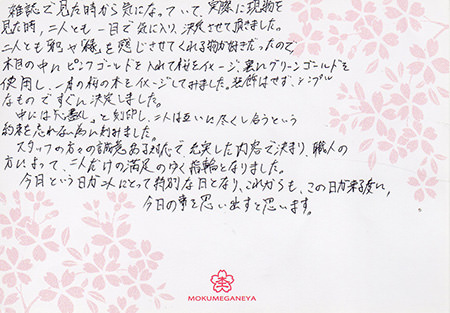 雑誌で見た時から気になっていて、実際に現物を
見た時、二人とも一目で気に入り、決定させて頂きました。
二人とも和や桜を感じさせてくれる物が好きだったので
木目の中にピンクゴールドを入れて桜をイメージ、裏にグリーンゴールドを
使用し、一本の桜の木をイメージしてみました。装飾はせず、シンプル
なものですぐに決定しました。
中には「尽し」と刻印し、二人は互いに尽くし合うという
約束を忘れない為に刻みました。
スタッフの方々の誠意ある対応で、充実した内容で決まり、職人の
方によって、二人だけの満足のゆく指輪となりました。
今日という日が二人にとって特別な日となり、これからも、この日が来る度に、
今日の事を思い出すと思います。
MOKUMEGANEYA